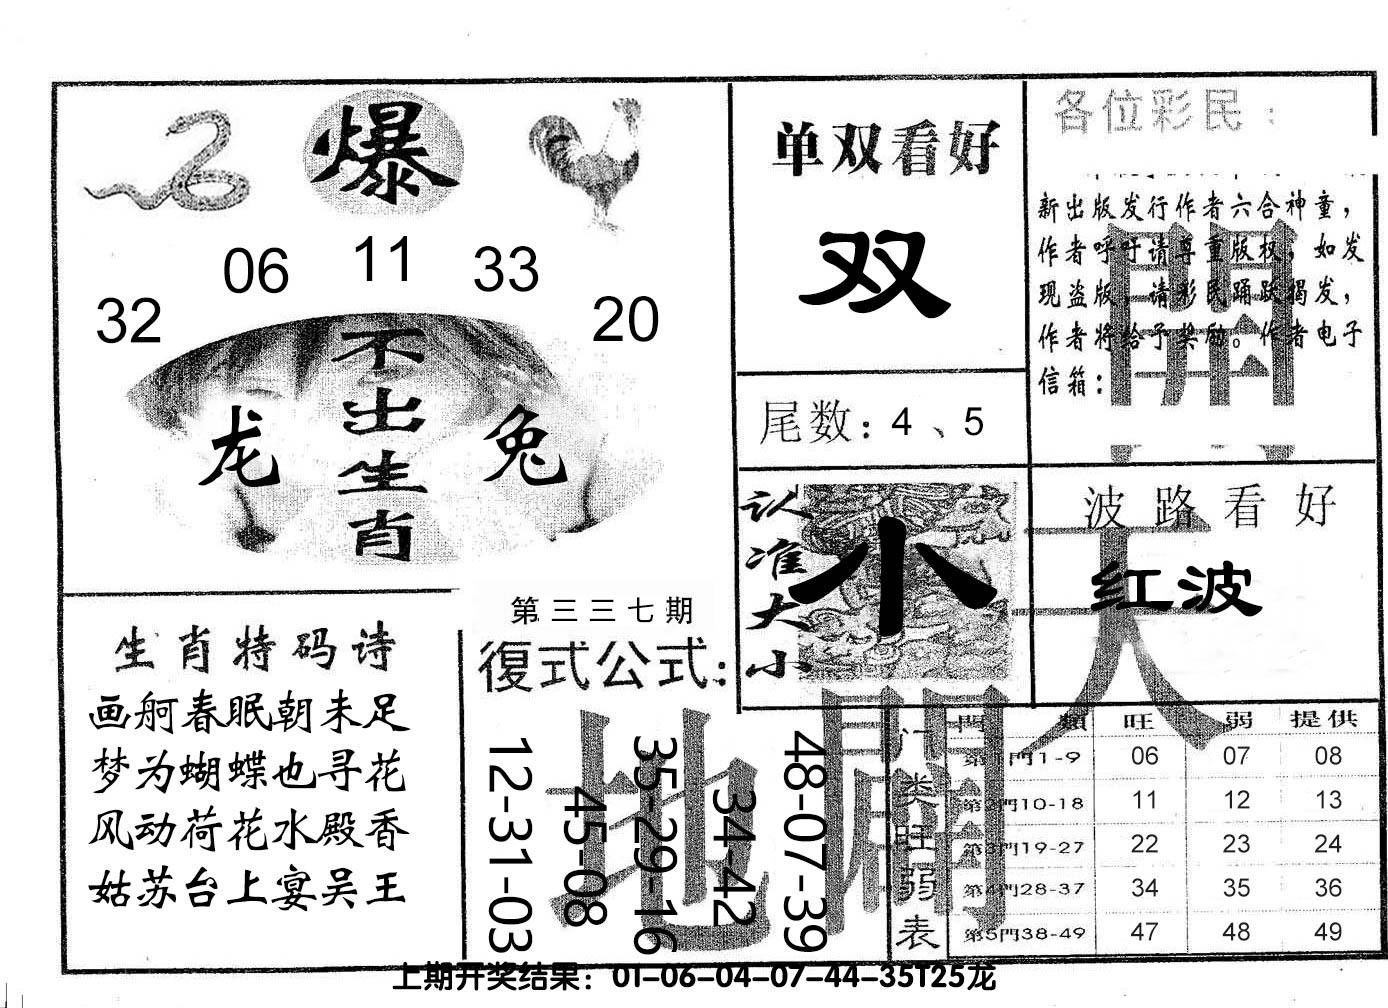 爆
06 11 33
32 20
不出生肖
龙 兔
单双看好
双
尾数：4、5
各位彩民：
新出版发行作者六合神童，
作者呼吁请尊重版权，如发
现盗版，请彩民踊跃揭发，
作者将给予奖励。作者电子
信箱：
開
认准大小
小
波路看好
红波
天
生肖特码诗
画舸春眠朝未足
梦为蝴蝶也寻花
风动荷花水殿香
姑苏台上宴吴王
第三三七期
復式公式：
12-31-03
45-08
35-29-16
34-42
48-07-39
地
門
门类旺弱表
門類 旺 弱 提供
第1門1-9 06 07 08
第2門10-18 11 12 13
第3門19-27 22 23 24
第4門28-37 34 35 36
第5門38-49 47 48 49
上期开奖结果：01-06-04-07-44-35T25龙